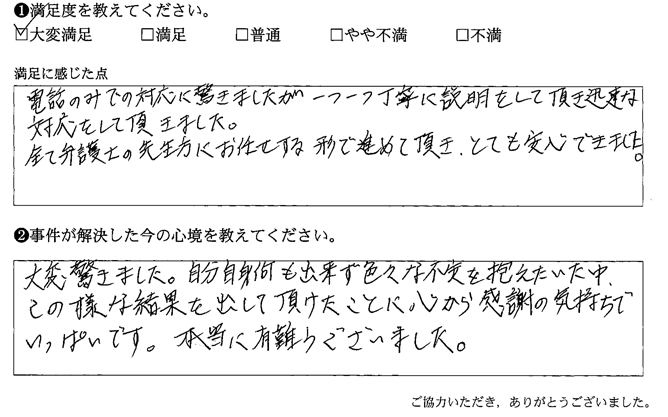 ❶満足度を教えてください。
☑大変満足 □満足 □普通 □やや不満 □不満
満足に感じた点
電話のみでの対応に驚きましたが一つ一つ丁寧に説明をして頂き迅速な
対応をして頂きました。
全て弁護士の先生方にお任せする形で進めて頂き、とても安心できました。
❷事件が解決した今の心境を教えてください。
大変驚きました。自分自身何も出来ず色々な不安を抱えていた中、
この様な結果を出して頂けたことに心から感謝の気持ちで
いっぱいです。本当に有難うございました。
ご協力いただき，ありがとうございました。